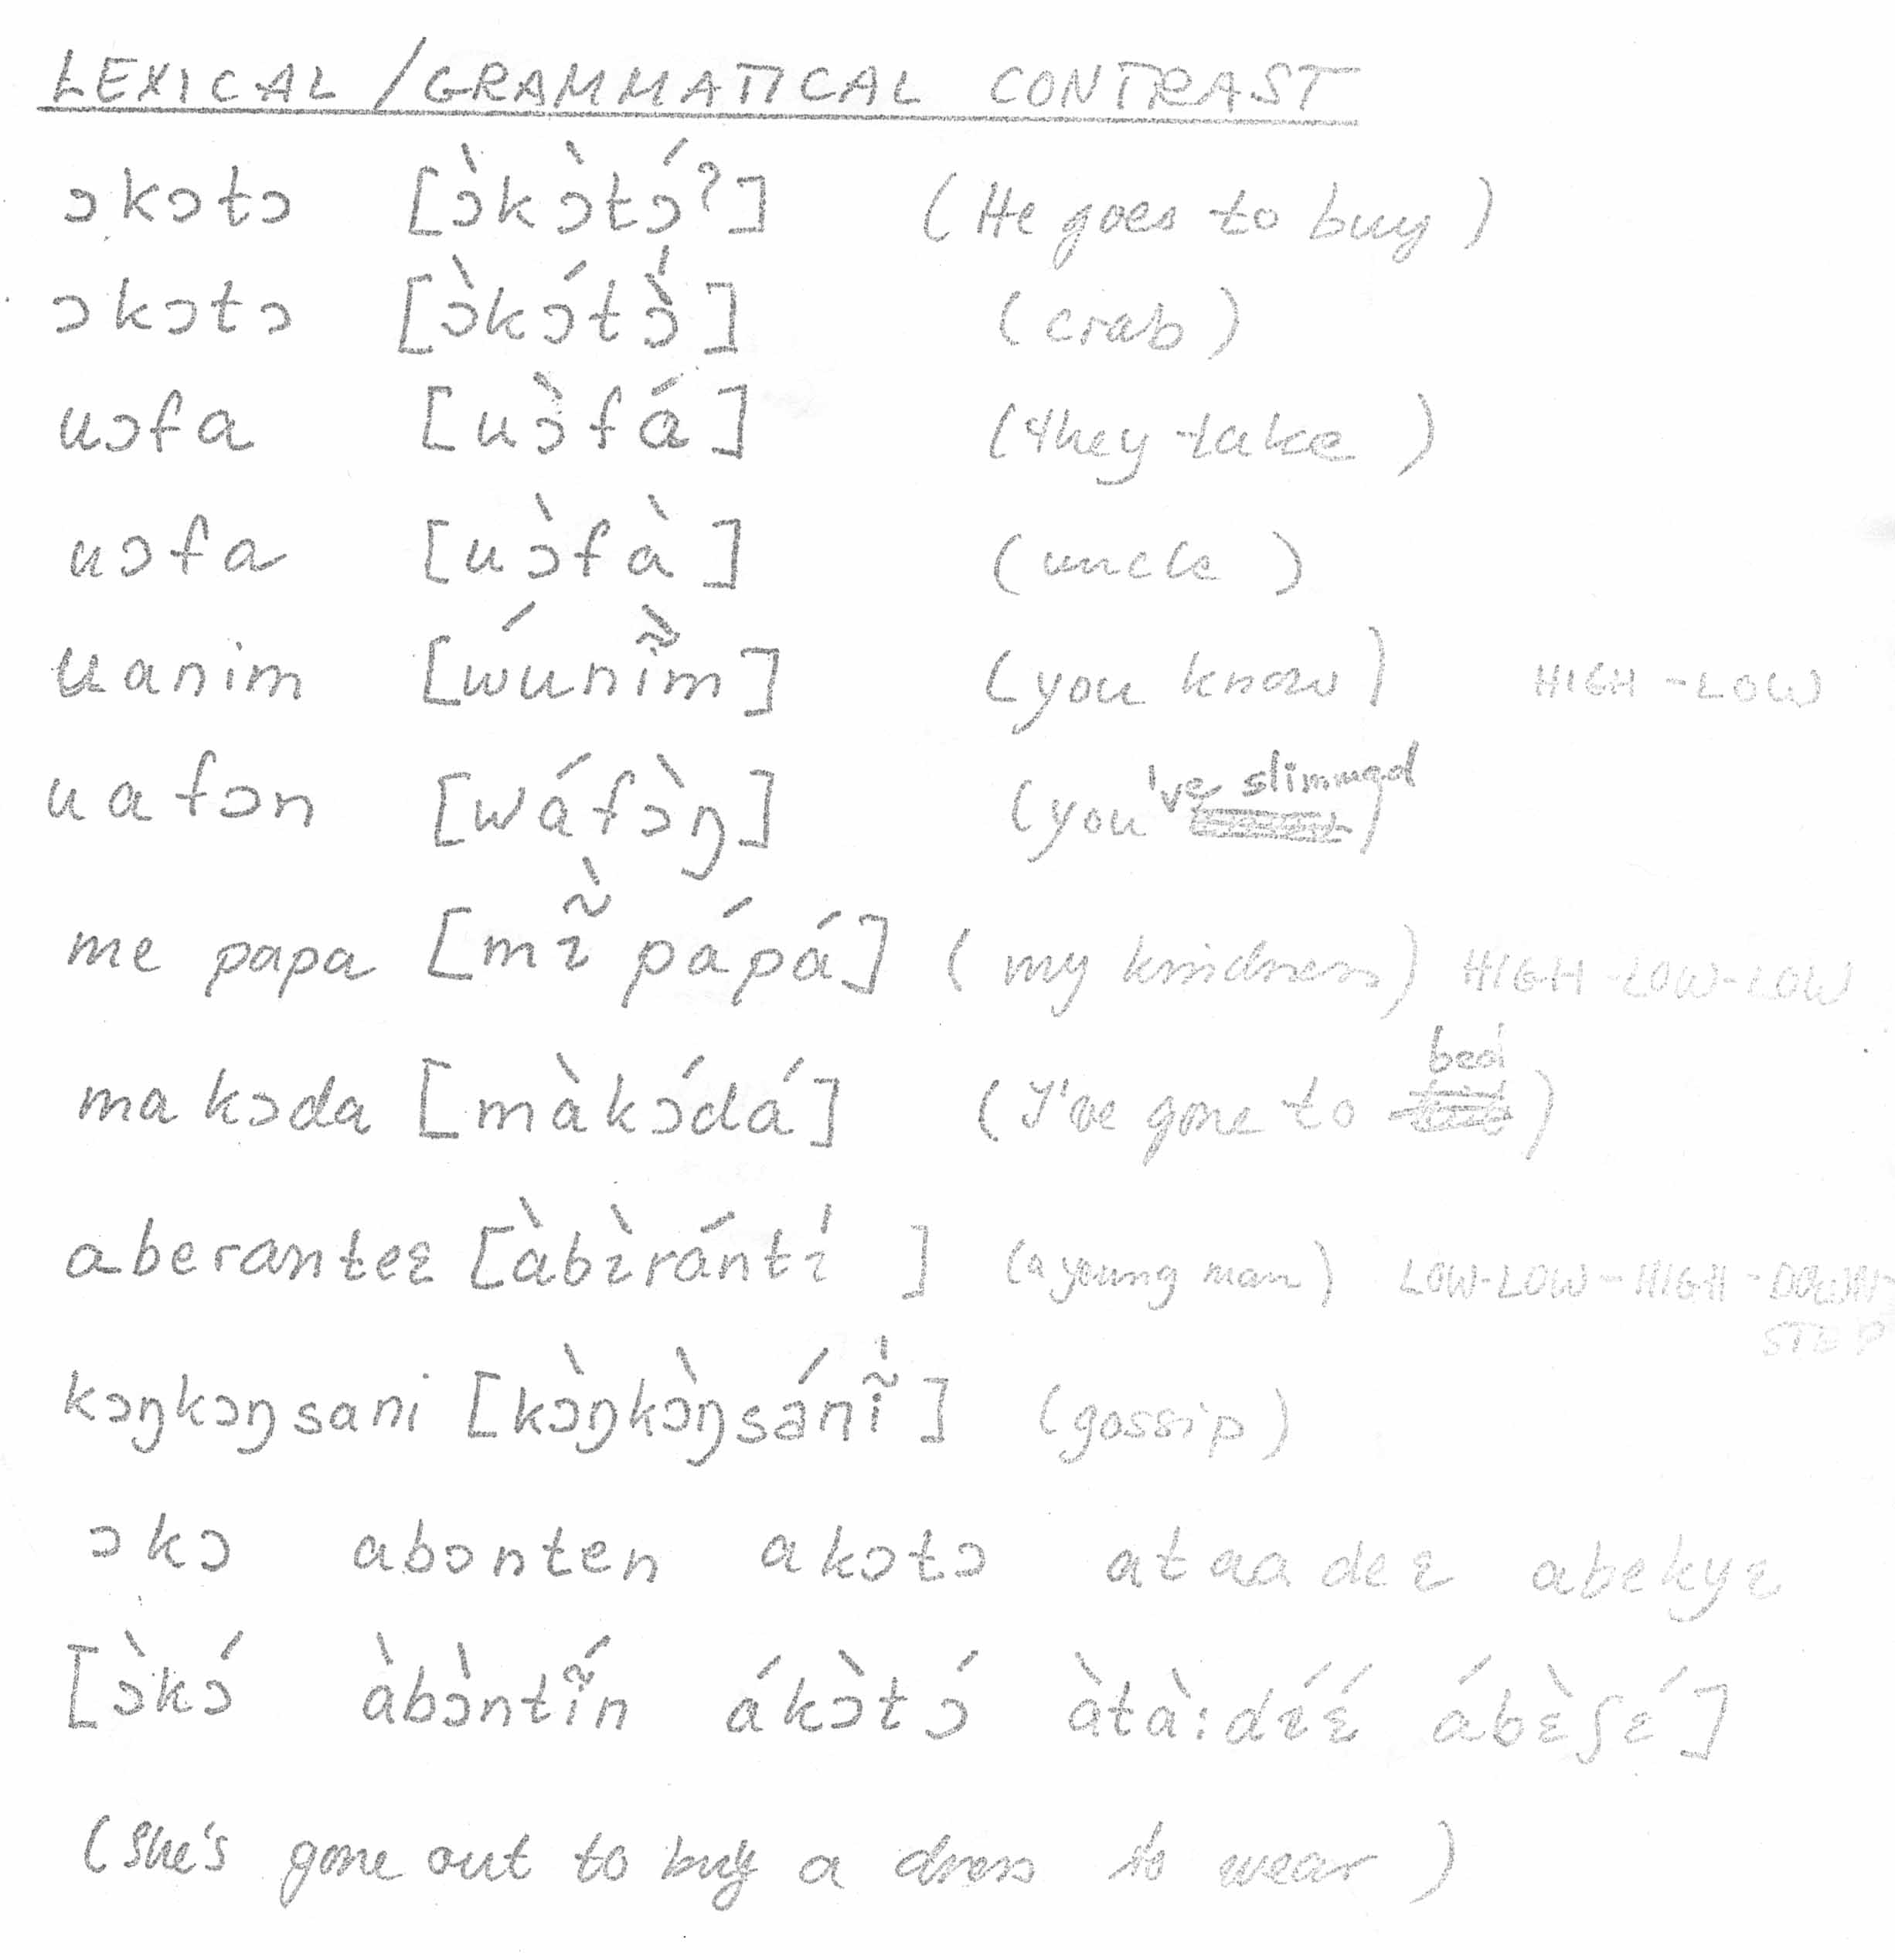 LEXICAL / GRAMMATICAL CONTRAST
ɔkɔtɔ [ɔ̀kɔ̀tɔ́ˀ] (He goes to buy)
ɔkɔtɔ [ɔ̀kɔ́tɔ̀̍] (crab)
uɔfa [uɔ̀fá] (they take)
uɔfa [uɔ̀fà] (uncle)
uanim [wúnĩ̀m] (you know) HIGH-LOW
uafɔn [wáfɔ̀ŋ] (you've slimmed)
me papa [mɪ̃̀ pápá] (my kindness) HIGH-LOW-LOW
ma kɔda [màkɔ́dá] (I've gone to bed)
aberanteɛ [àbɪ̀rántɪ̍] (a young man) LOW-LOW-HIGH-DOWN-
STEP
kɔŋkɔŋsani [kɔ̀ŋkɔ̀ŋsánĩ̍] (gossip)
ɔkɔ abɔnten akɔtɔ ataadeɛ abekyɛ
[ɔ̀kɔ́ àbɔ̀ntĩ́n ákɔ̀tɔ́ àtà:dɪ́ɛ́ ábɛ̀ʃɛ́]
(She's gone out to buy a dress to wear)